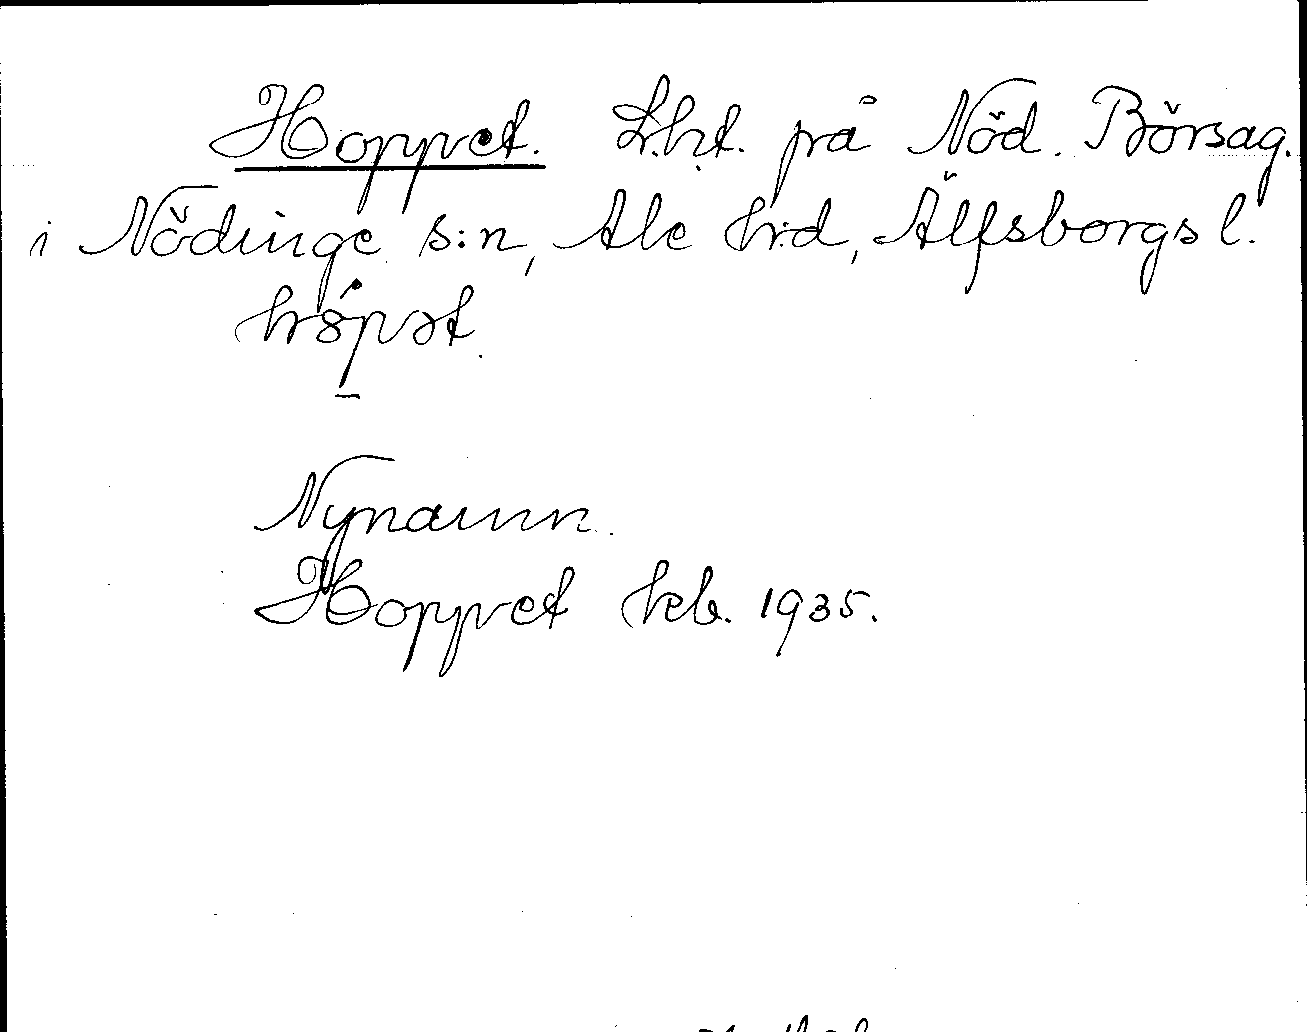 Hoppet. L.ht. på Nöd. Börsag.
i Nödinge s:n, Ale h:d, Älfsborgs l.
Nynamn.
Hoppet kb. 1935.